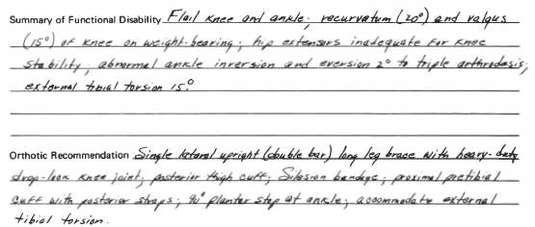 Summary of Functional Disability Flail knee and ankle; recurvatum (20°) and valgus
(15°) of knee on weight-bearing; hip extensors inadequate for knee
stability; abnormal ankle inversion and eversion 2° to triple arthrodesis;
external tibial torsion 15°.
Orthotic Recommendation Single lateral upright (double bar) long leg brace with heavy-duty
drop-lock knee joint; posterior thigh cuff; Silesian bandage; proximal pretibial
cuff with posterior straps; 90° plantar stop at ankle; accommodate external
tibial torsion.